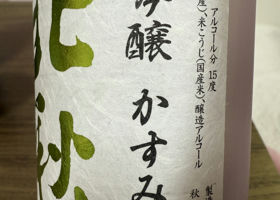 アルコール分 15度
産)、米こうじ(国産米)、醸造アルコール
製
秋
吟醸 かすみ
北秋